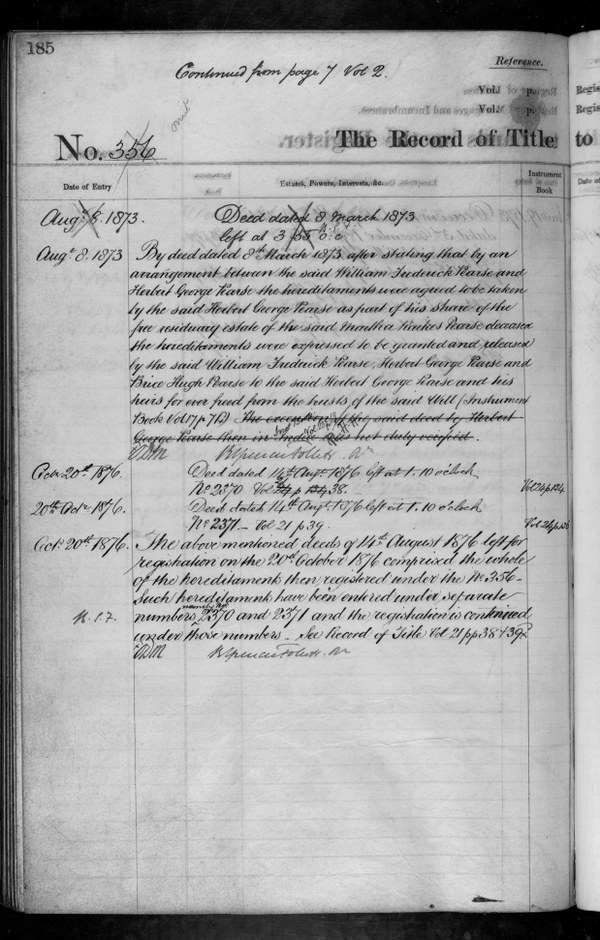 185
Continued from page 7 Vol 2.
Reference.
Vol. p.
Vol. p.
omit
No. 356
The Record of Title
Date of Entry
Estates, Powers, Interests, &c.
Instrument Book
Augt 8. 1873.
Deed dated 8 March 1873
left at 3.55 o.c
Augt 8. 1873
By deed dated 8th March 1873 after stating that by an
arrangement between the said William Frederick Pearse and
Herbert George Pearse the hereditaments were agreed to be taken
by the said Herbert George Pearse as part of his share of the
free residuary estate of the said Martha Raikes Pearse deceased
the hereditaments were expressed to be granted and released
by the said William Frederick Pearse, Herbert George Pearse and
Brice Hugh Pearse to the said Herbert George Pearse and his
heirs for ever freed from the trusts of the said Will (Instrument
Book Vol 17 p 712) The execution of the said deed by Herbert
George Pearse then in India was not duly verified.
Octr 20th 1876.
Deed dated 14th Augt 1876 left at 1.10 o'clock
No 2370 Vol 21 p 38.
Vol 24 p 124
20th Octr 1876.
Deed dated 14th Augt 1876 left at 1.10 o'clock
No 2371 Vol 21 p 39.
Vol 24 p
Octr 20th 1876.
The above mentioned deeds of 14th August 1876 left for
registration on the 20th October 1876 comprised the whole
of the hereditaments then registered under the No 356 -
Such hereditaments have been entered under separate
numbers, namely Nos 2370 and 2371 and the registration is continued
under those numbers - See Record of Title Vol 21 pp 38 & 39
Regis
Regis
to
Date of